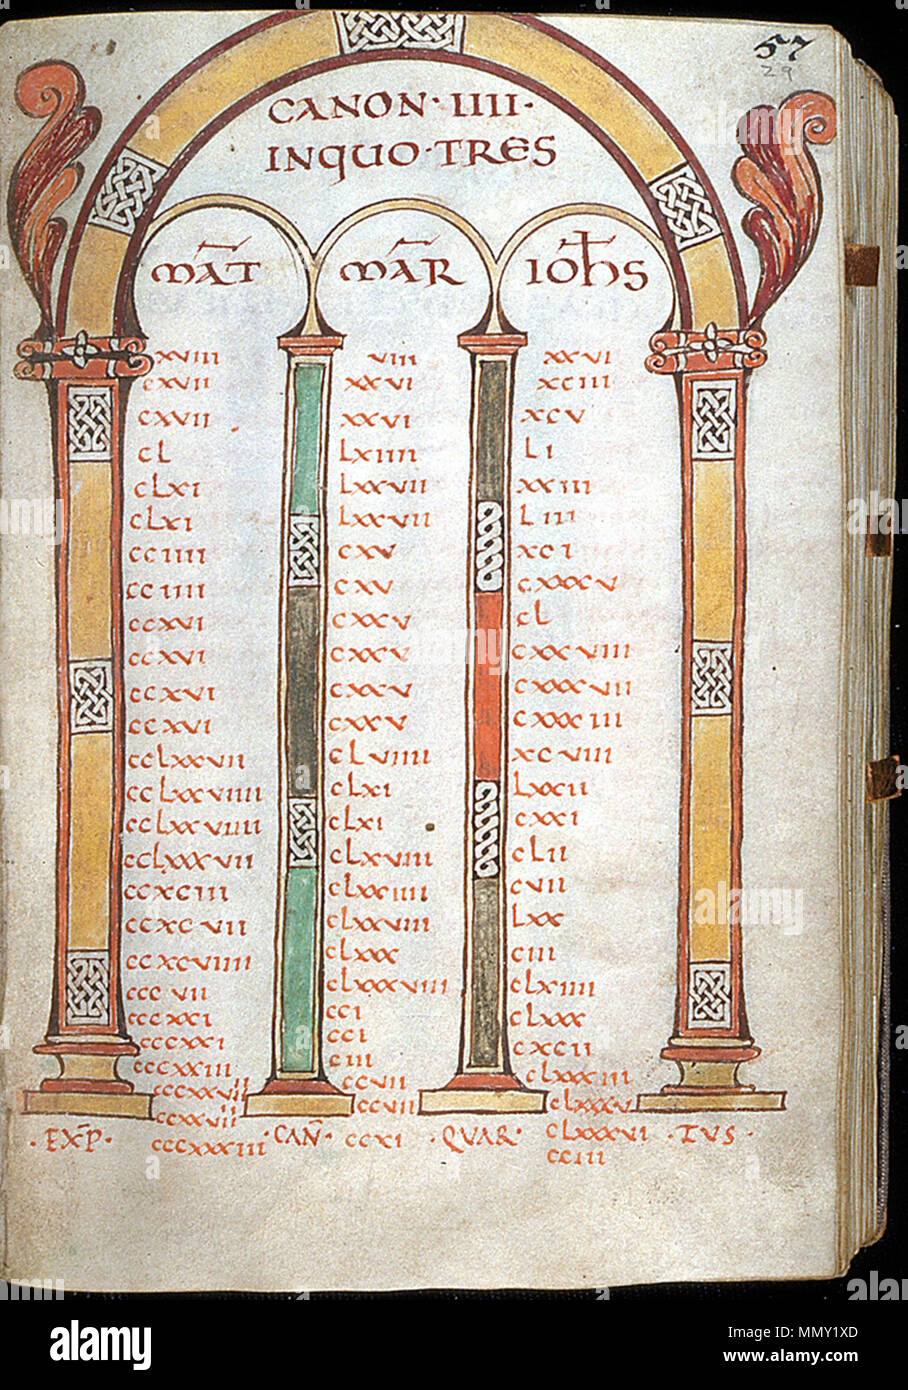 57
29
CANON · IIII ·
INQUO · TRES
MAT̄
MAR̄
IOħS
xviii
cxvii
cxvii
cL
cLxi
cLxi
cciiii
cciiii
ccxvi
ccxvi
ccxvi
ccxvi
ccLxxvii
ccLxxviiii
ccLxxviiii
ccLxxxvii
ccxciii
ccxcvii
ccxcviiii
cccvii
cccxxi
cccxxi
cccxxiii
cccxxvii
ccxxvii
cccxxxiii
viii
xxvi
xxvi
Lxiiii
Lxxvii
Lxxvii
cxv
cxv
cxxv
cxxv
cxxv
cxxv
cLviiii
cLxi
cLxi
cLxviii
cLxxiiii
cLxxviii
cLxxx
cLxxxviii
cci
cci
ciii
ccvii
ccvii
ccxi
xxvi
xciii
xcv
Li
xxiii
Liii
xci
cxxxv
cL
cxxviii
cxxxvii
cxxxiii
xcviii
Lxxii
cxxi
cLii
cvii
Lxx
ciii
cLxiiii
cLxxx
cxcii
cLxxxiii
cLxxxv
cLxxxvi
cciii
· EXP̄ · · CAN̄ · · QUAR · · TUS ·
alamy
Image ID: MMY1XD
www.alamy.com